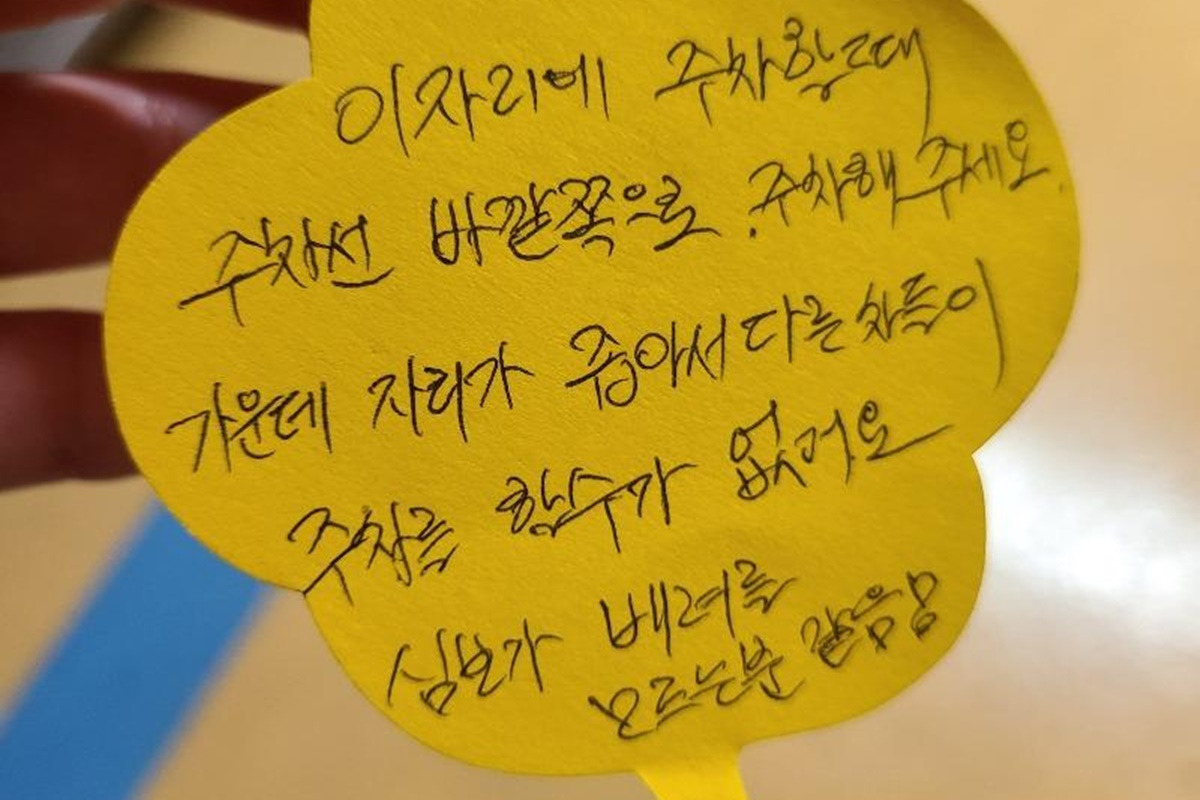 이자리에 주차할때
주차선 바깥쪽으로 주차해 주세요.
가운데 자리가 좁아서 다른 차들이
주차를 할수가 없어요
심보가 배려를
모르는분 같음